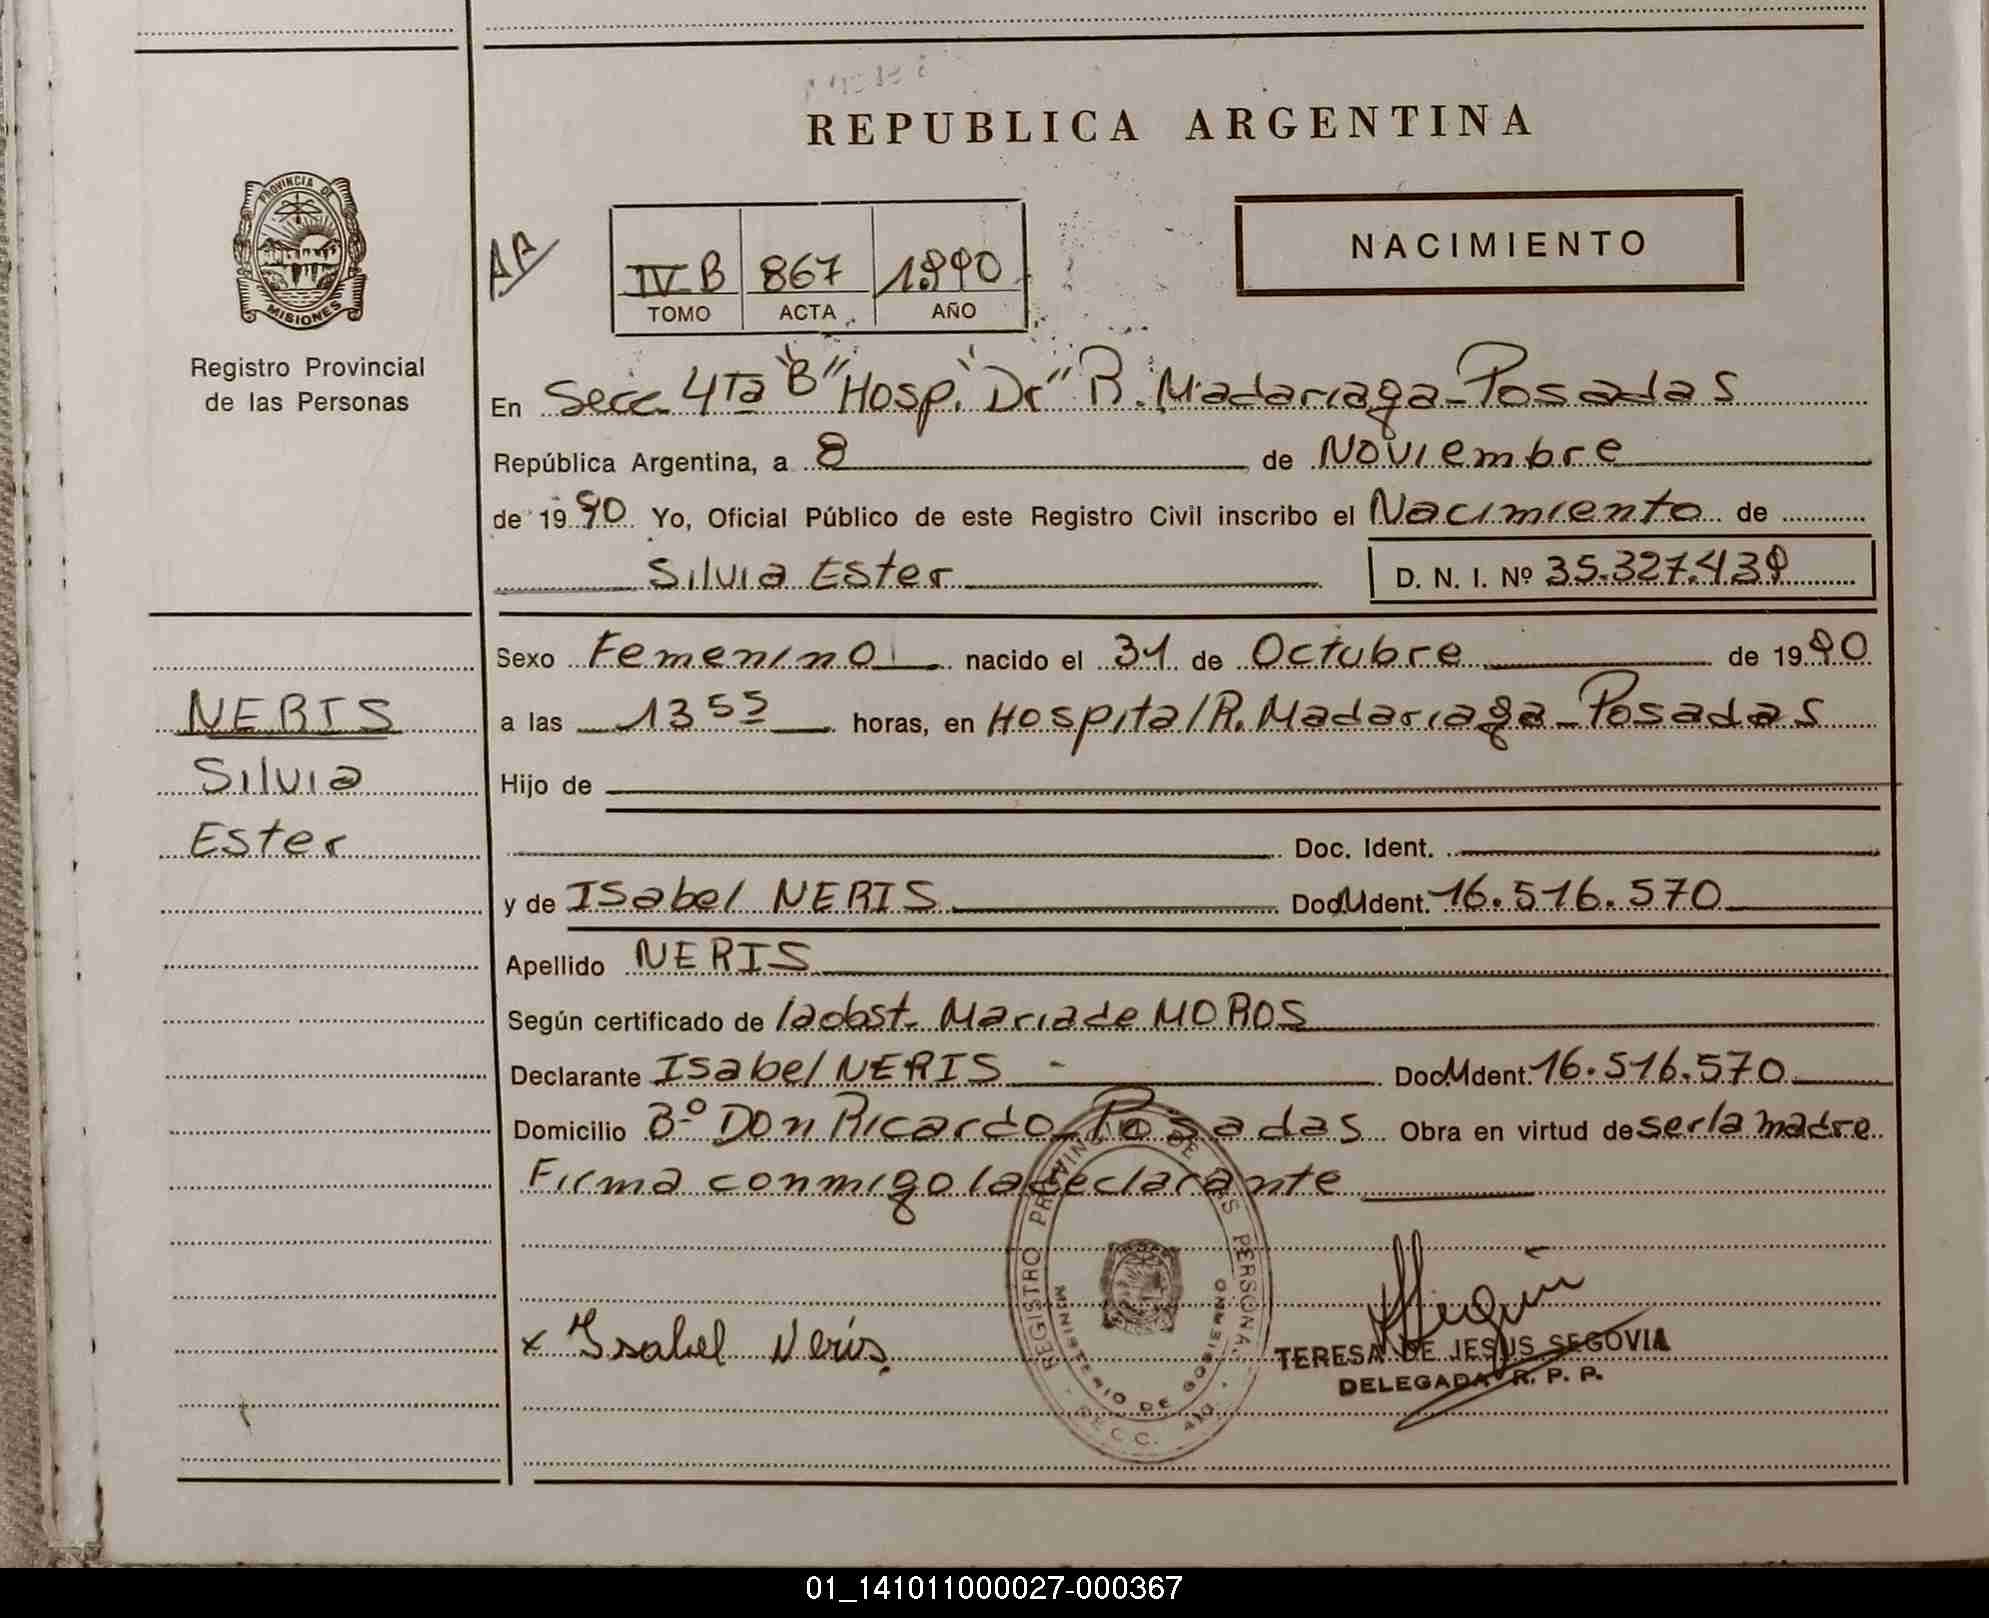 REPUBLICA ARGENTINA
PROVINCIA DE
MISIONES
Registro Provincial
de las Personas
NACIMIENTO
IV B 867 1.990
TOMO ACTA AÑO
En Secc. 4Ta "B" Hosp. "Dr" R. Madariaga - Posadas
República Argentina, a 8 de Noviembre
de 1990 Yo, Oficial Público de este Registro Civil inscribo el Nacimiento de
Silvia Ester D. N. I. Nº 35.327.439
Sexo Femenino nacido el 31 de Octubre de 1990
NERIS
a las 13 55 horas, en Hospital R. Madariaga - Posadas
Silvia
Hijo de
Ester
Doc. Ident.
y de Isabel NERIS Doc. Ident. 16.516.570
Apellido NERIS
Según certificado de la obst. Maria de MOROS
Declarante Isabel NERIS - Doc. Ident. 16.516.570
Domicilio Bº Don Ricardo - Posadas Obra en virtud de ser la madre
Firma conmigo la declarante
x Isabel Neris.
REGISTRO PROVINCIAL DE LAS PERSONAS
MINISTERIO DE GOBIERNO
SECC.
TERESA DE JESUS SEGOVIA
DELEGADA R. P. P.
01_141011000027-000367